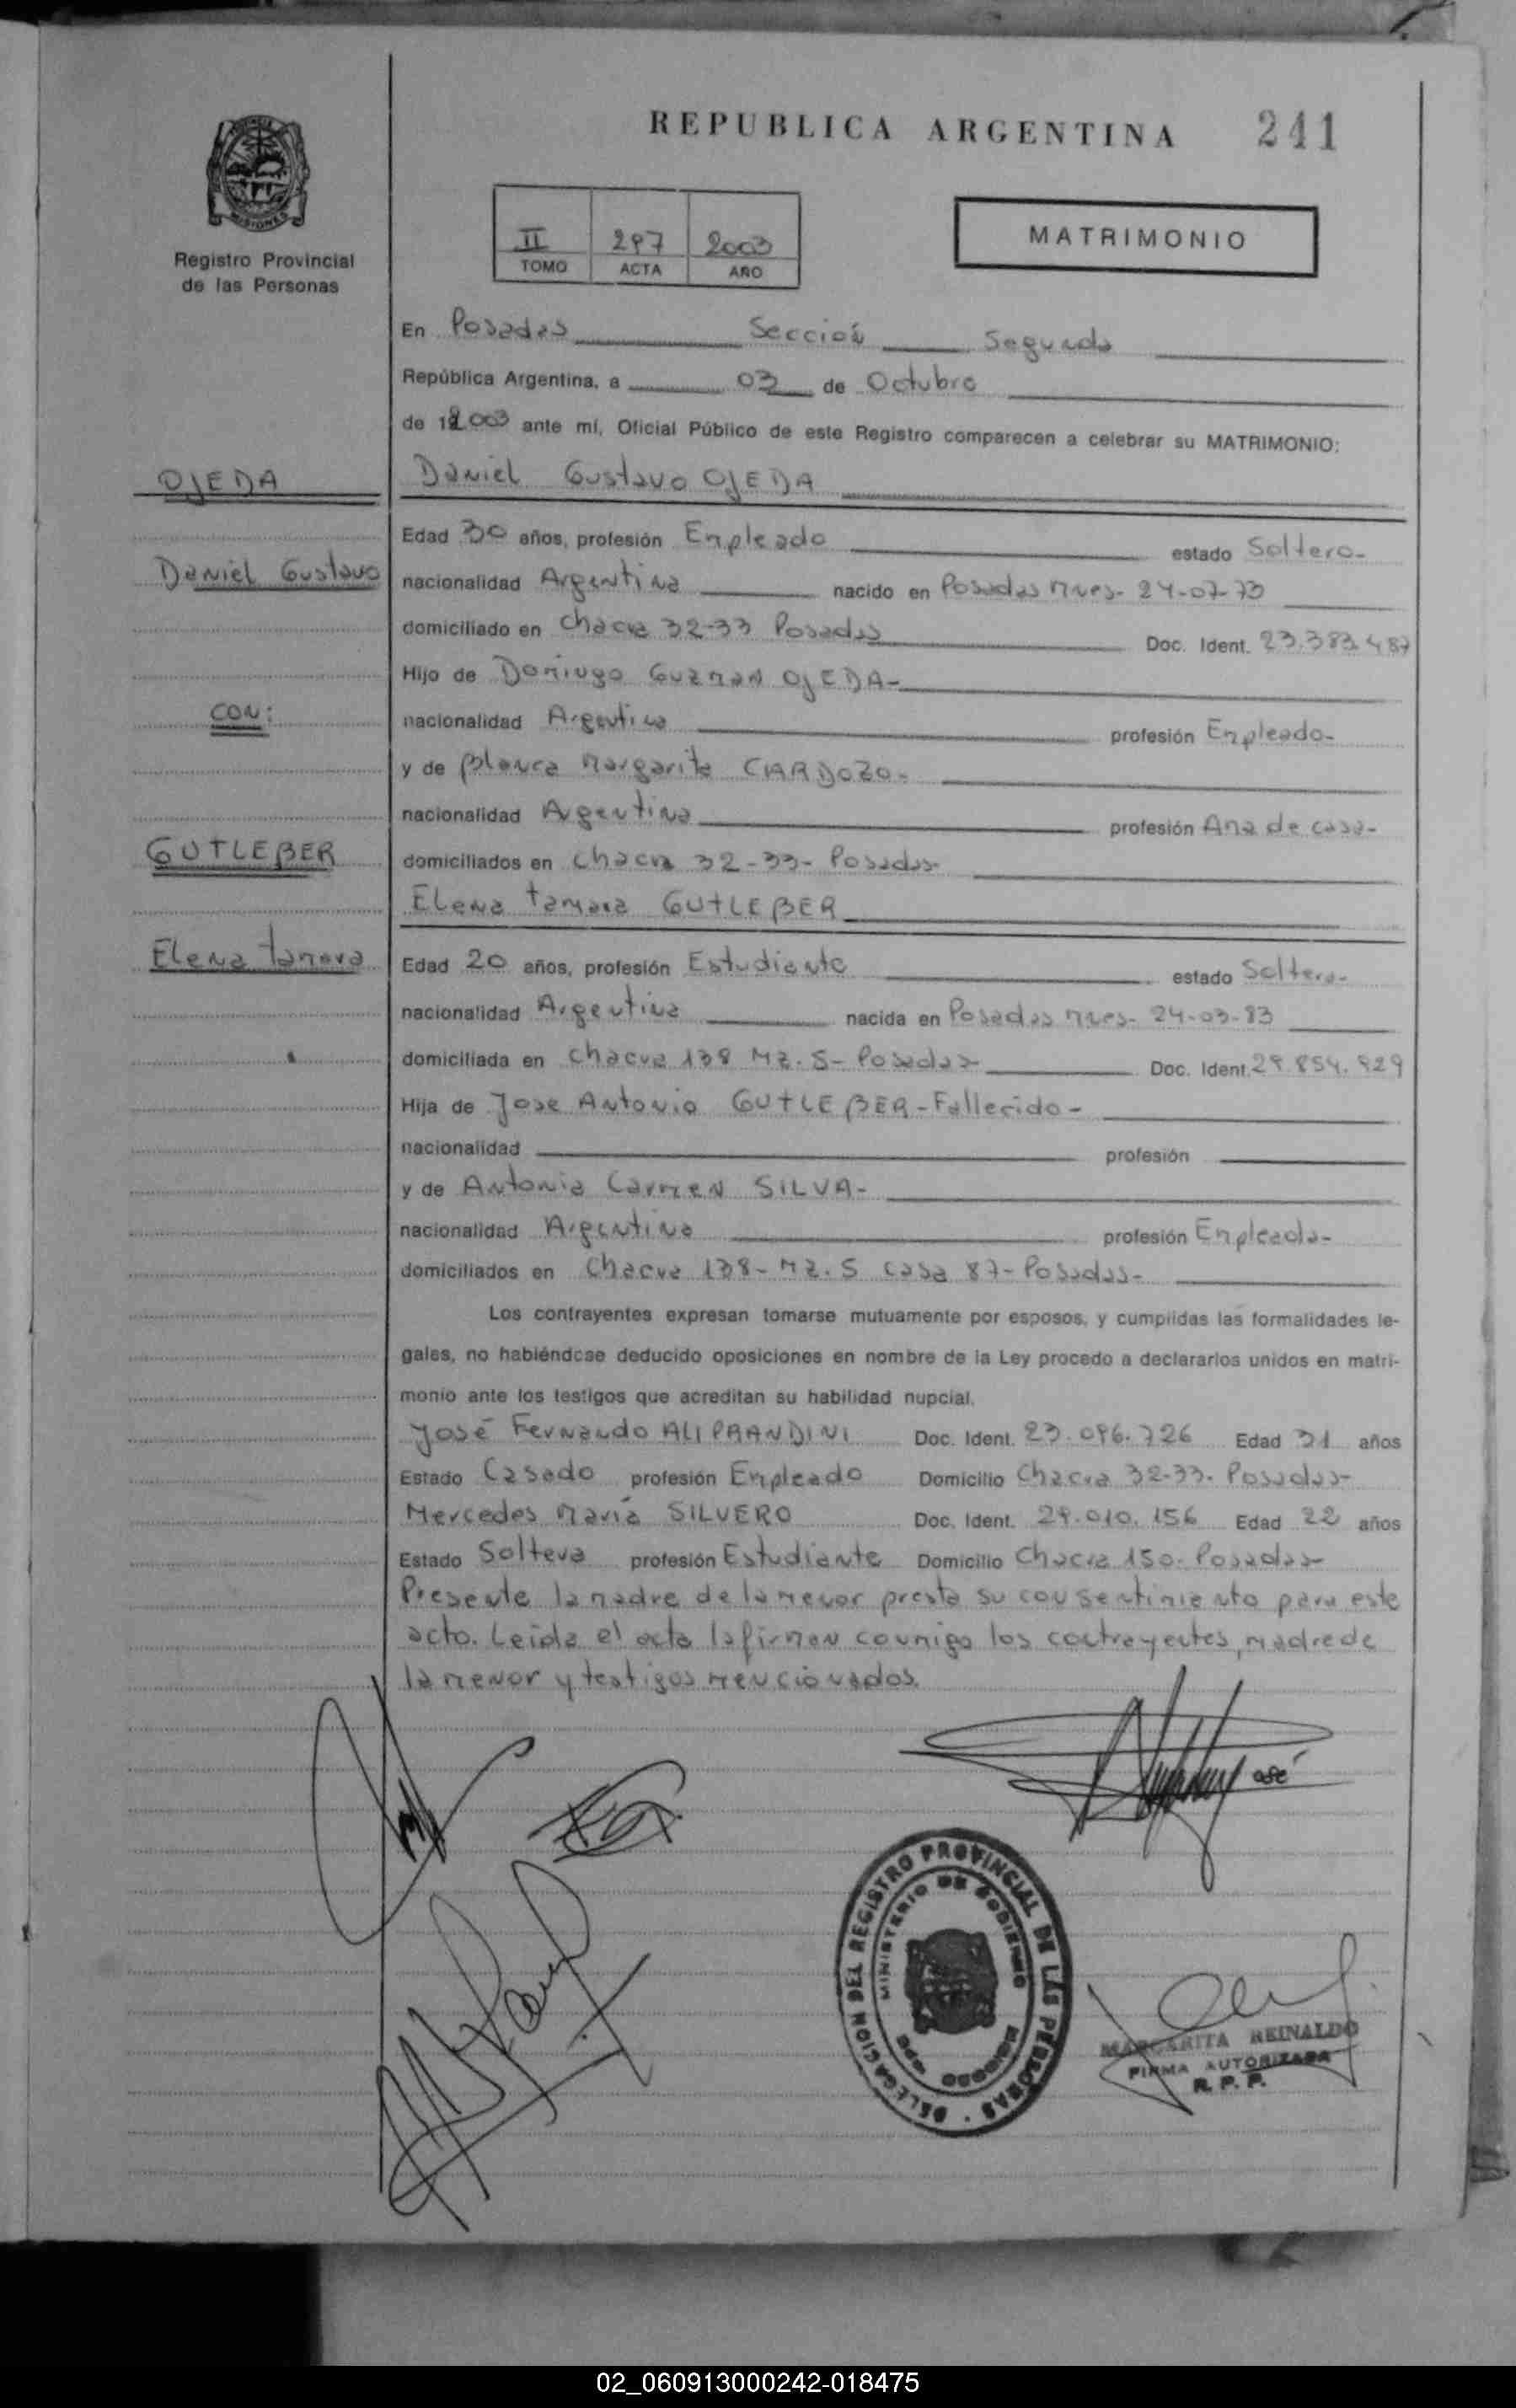 REPUBLICA ARGENTINA 241
MISIONES
Registro Provincial
de las Personas
II 297 2003
TOMO ACTA AÑO
MATRIMONIO
En Posadas Sección Segunda
República Argentina, a 03 de Octubre
de 2003 ante mí, Oficial Público de este Registro comparecen a celebrar su MATRIMONIO:
OJEDA
Daniel Gustavo OJEDA
Edad 30 años, profesión Empleado estado Soltero-
Daniel Gustavo
nacionalidad Argentina nacido en Posadas Mnes- 24-07-73
domiciliado en Chacra 32-33 Posadas Doc. Ident. 23.383.487
Hijo de Domingo Guzman OJEDA-
CON:
nacionalidad Argentina profesión Empleado-
y de Blanca Margarita CARDOZO-
nacionalidad Argentina profesión Ama de casa-
GUTLEBER
domiciliados en Chacra 32-33- Posadas-
Elena Tamara GUTLEBER
Elena Tamara
Edad 20 años, profesión Estudiante estado Soltera-
nacionalidad Argentina nacida en Posadas Mnes- 24-03-83
domiciliada en Chacra 138 Mz. S- Posadas- Doc. Ident.
Hija de Jose Antonio GUTLEBER-Fallecido-
nacionalidad profesión
y de Antonia Carmen SILVA-
nacionalidad Argentina profesión Empleada-
domiciliados en Chacra 138- Mz. S Casa 87- Posadas-
Los contrayentes expresan tomarse mutuamente por esposos, y cumplidas las formalidades le-
gales, no habiéndose deducido oposiciones en nombre de la Ley procedo a declararlos unidos en matri-
monio ante los testigos que acreditan su habilidad nupcial.
José Fernando ALIPRANDINI Doc. Ident. 23.096.726 Edad 31 años
Estado Casado profesión Empleado Domicilio Chacra 32-33- Posadas-
Mercedes María SILVERO Doc. Ident. 29.010.156 Edad 22 años
Estado Soltera profesión Estudiante Domicilio Chacra 150- Posadas-
Presente la madre de la menor presta su consentimiento para este
acto. Leida el acta la firman conmigo los contrayentes, madre de
la menor y testigos mencionados.
José
DELEGACION DEL REGISTRO PROVINCIAL DE LAS PERSONAS
MINISTERIO DE GOBIERNO
MARGARITA REINALDO
FIRMA AUTORIZADA
R. P. P.
02_060913000242-018475